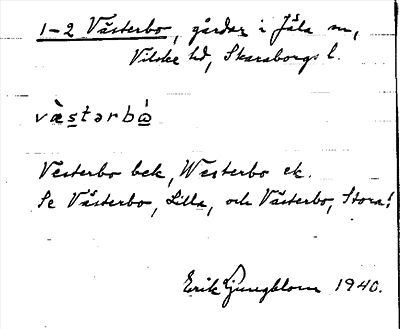 1-2 Västerbo, gårdar i Jäla sn,
Vilske hd, Skaraborgs l.
væ̀stərbó̤
Vesterbo bek, Westerbo ek.
Se Västerbo, Lilla, och Västerbo, Stora!
Erik Ljungblom 1940.